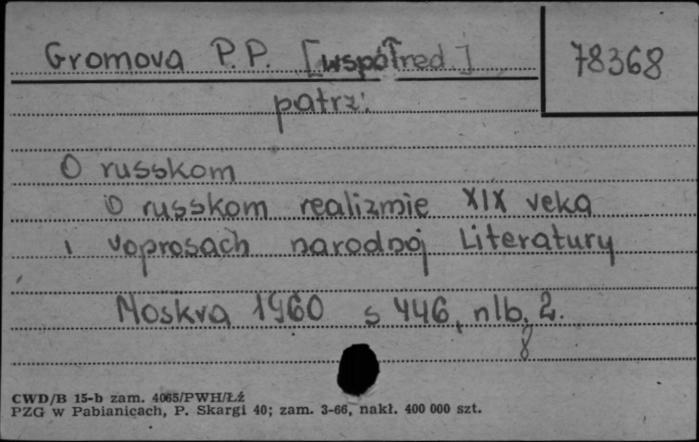 Gromova P.P. [współred.]
78368
patrz:
O russkom
O russkom realizmie XIX veka
i voprosach narodnoj Literatury
Moskva 1960 s 446, nlb. 2.
8
CWD/B 15-b zam. 4065/PWH/Łź
PZG w Pabianicach, P. Skargi 40; zam. 3-66, nakł. 400 000 szt.